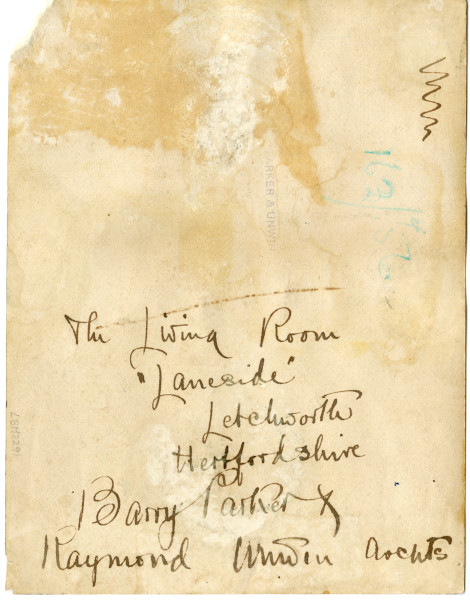 The Living Room
"Laneside"
Letchworth
Hertfordshire
Barry Parker &
Raymond Unwin Archts
PARKER & UNWIN